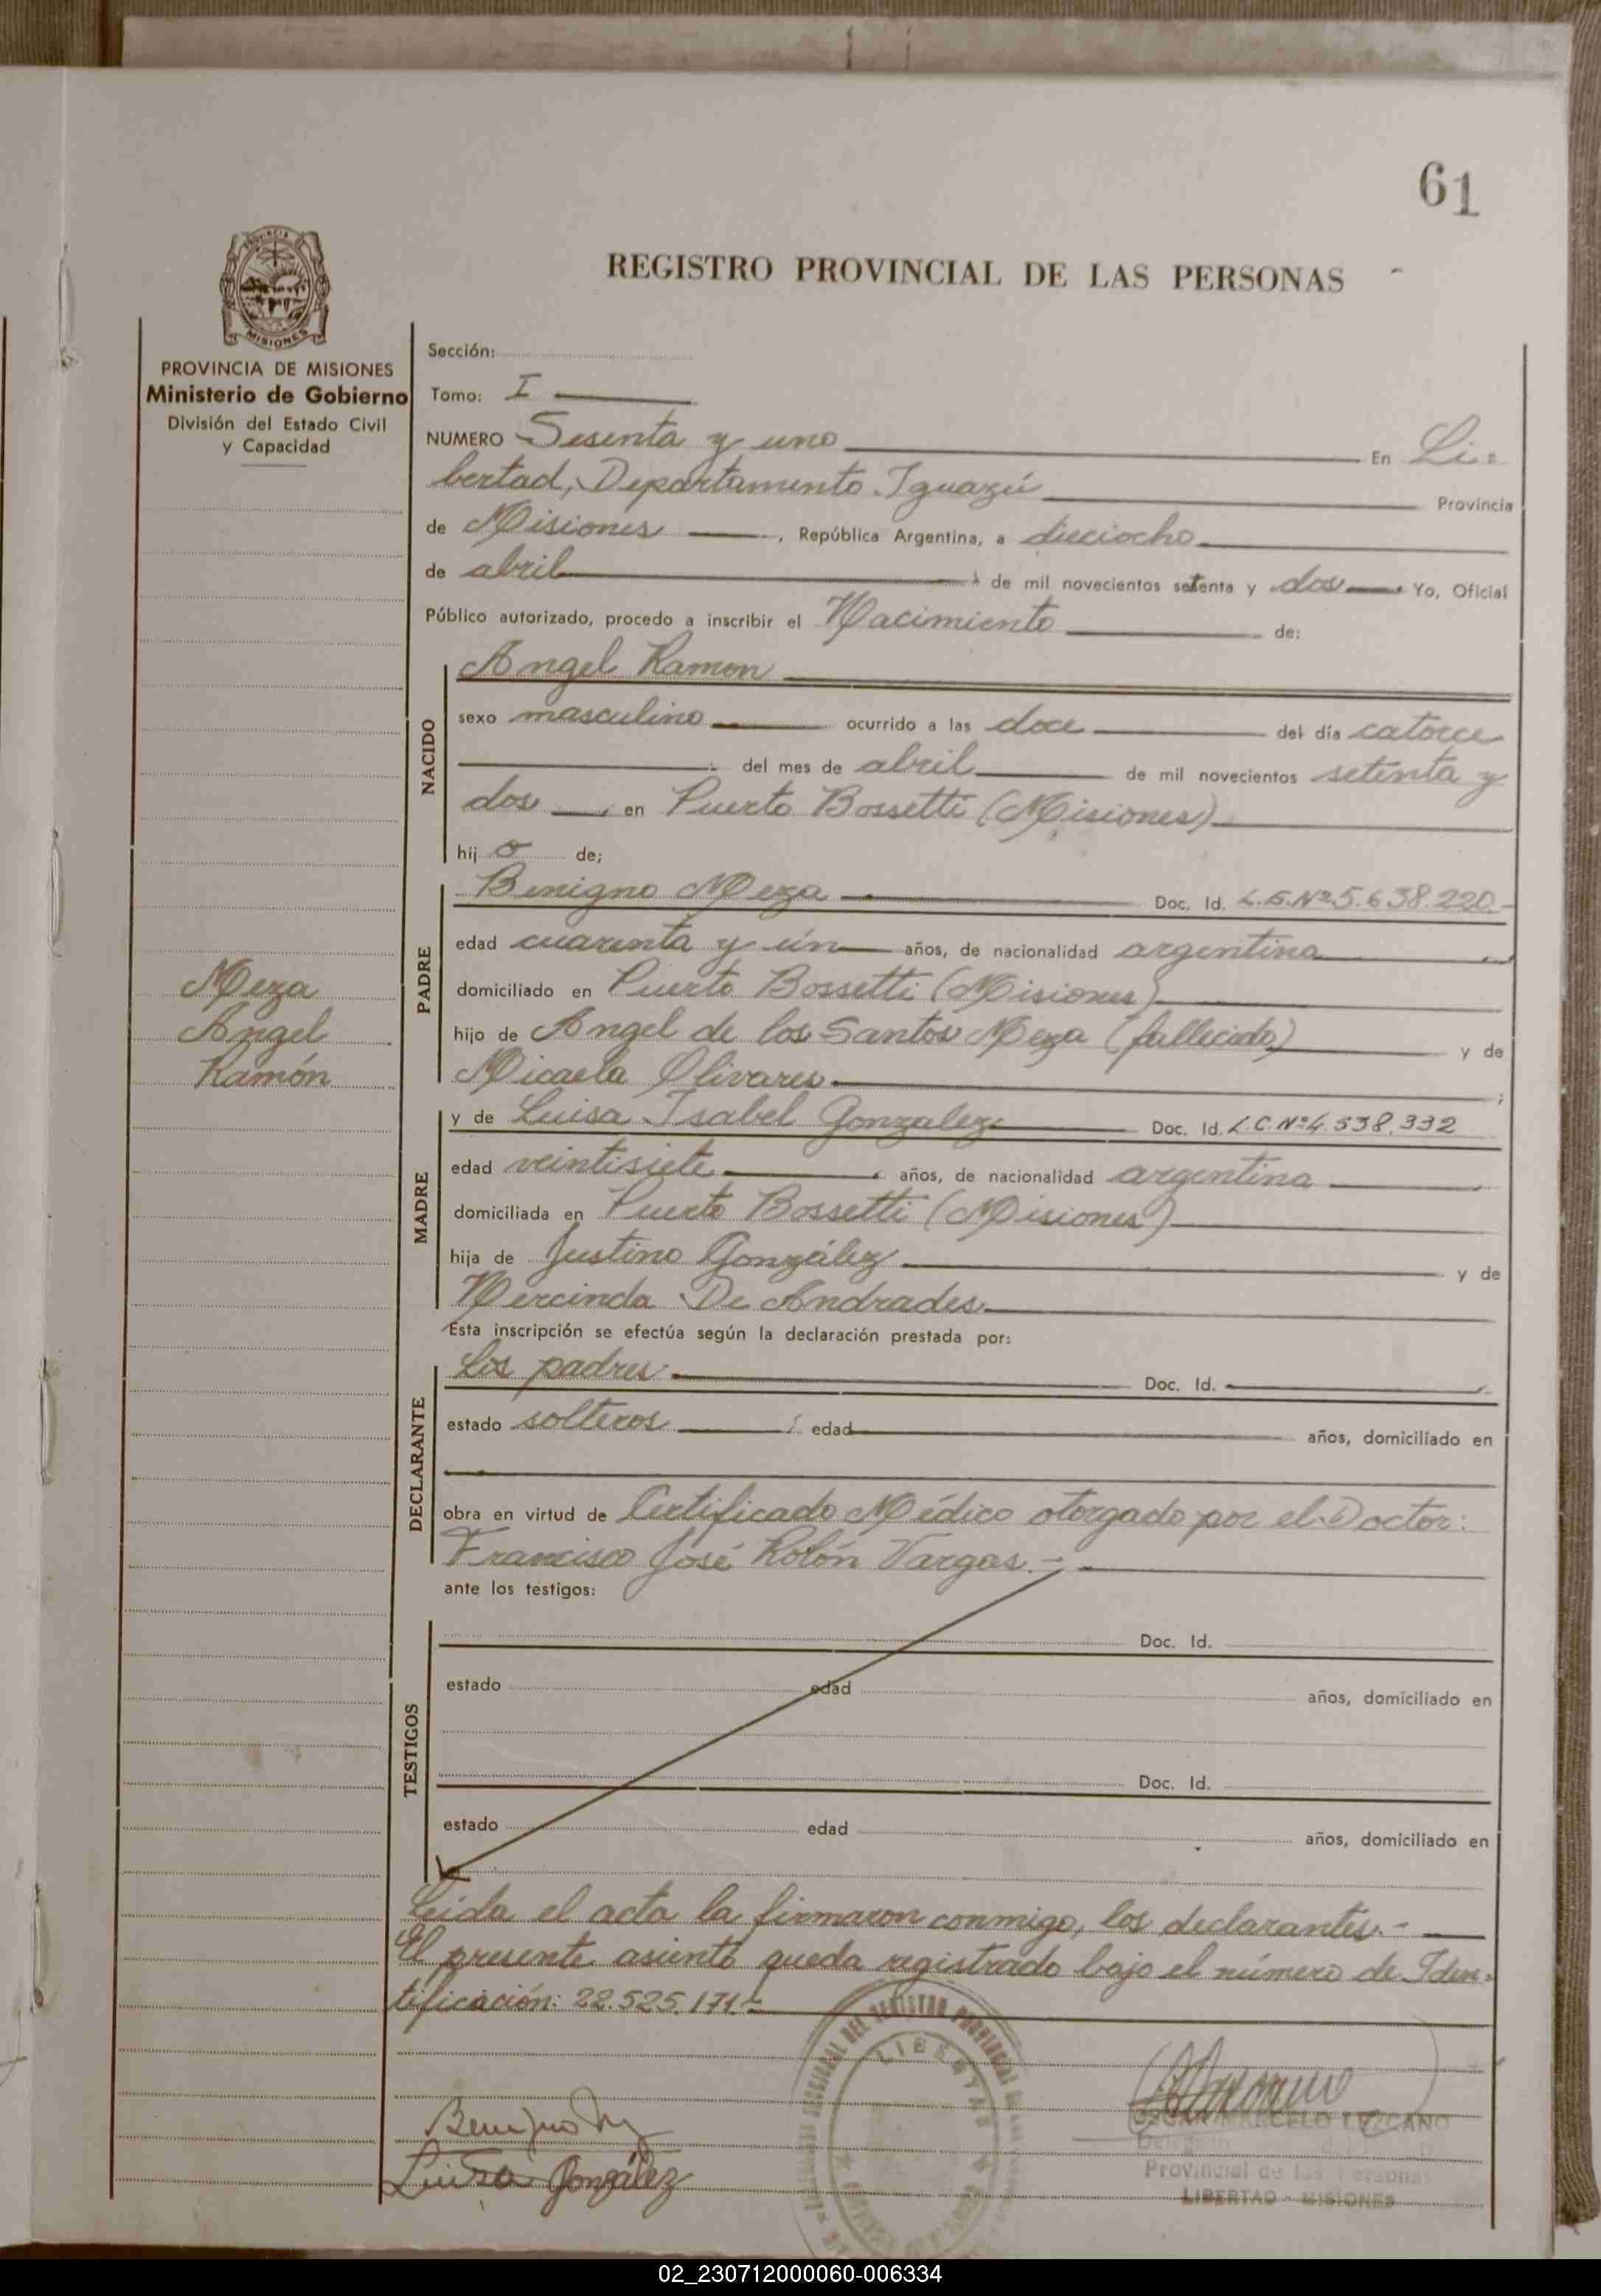 61
REGISTRO PROVINCIAL DE LAS PERSONAS
MISIONES
PROVINCIA DE MISIONES
Ministerio de Gobierno
División del Estado Civil
y Capacidad
Meza
Angel
Ramón
Sección:
Tomo: I
NUMERO Sesenta y uno En Li=
bertad, Departamento Iguazú Provincia
de Misiones, República Argentina, a dieciocho
de abril de mil novecientos setenta y dos Yo, Oficial
Público autorizado, procedo a inscribir el Nacimiento de:
NACIDO
Angel Ramon
sexo masculino ocurrido a las doce del día catorce
del mes de abril de mil novecientos setenta y
dos, en Puerto Bossetti (Misiones)
hij o de;
PADRE
Benigno Meza Doc. Id. L.E.Nº5.638.220.-
edad cuarenta y ún años, de nacionalidad argentina
domiciliado en Puerto Bossetti (Misiones)
hijo de Angel de los Santos Meza (fallecido) y de
Micaela Olivares ;
MADRE
y de Luisa Isabel Gonzalez Doc. Id. L.C.Nº4.538.332
edad veintisiete años, de nacionalidad argentina
domiciliada en Puerto Bossetti (Misiones)
hija de Justino González y de
Mercinda De Andrades.
Esta inscripción se efectúa según la declaración prestada por:
DECLARANTE
Los padres Doc. Id.
estado solteros ; edad años, domiciliado en
obra en virtud de Certificado Médico otorgado por el Doctor:
Francisco José Rolón Vargas.-
ante los testigos:
TESTIGOS
Doc. Id.
estado edad años, domiciliado en
Doc. Id.
estado edad años, domiciliado en
Leida el acta la firmaron conmigo, los declarantes.-
El presente asiento queda registrado bajo el número de Iden=
tificación: 22.525.171.-
LIBERTAD
Benigno
Luisa González
OSCAR MARCELO LEZCANO
Provincial de las Personas
LIBERTAD - MISIONES
02_230712000060-006334